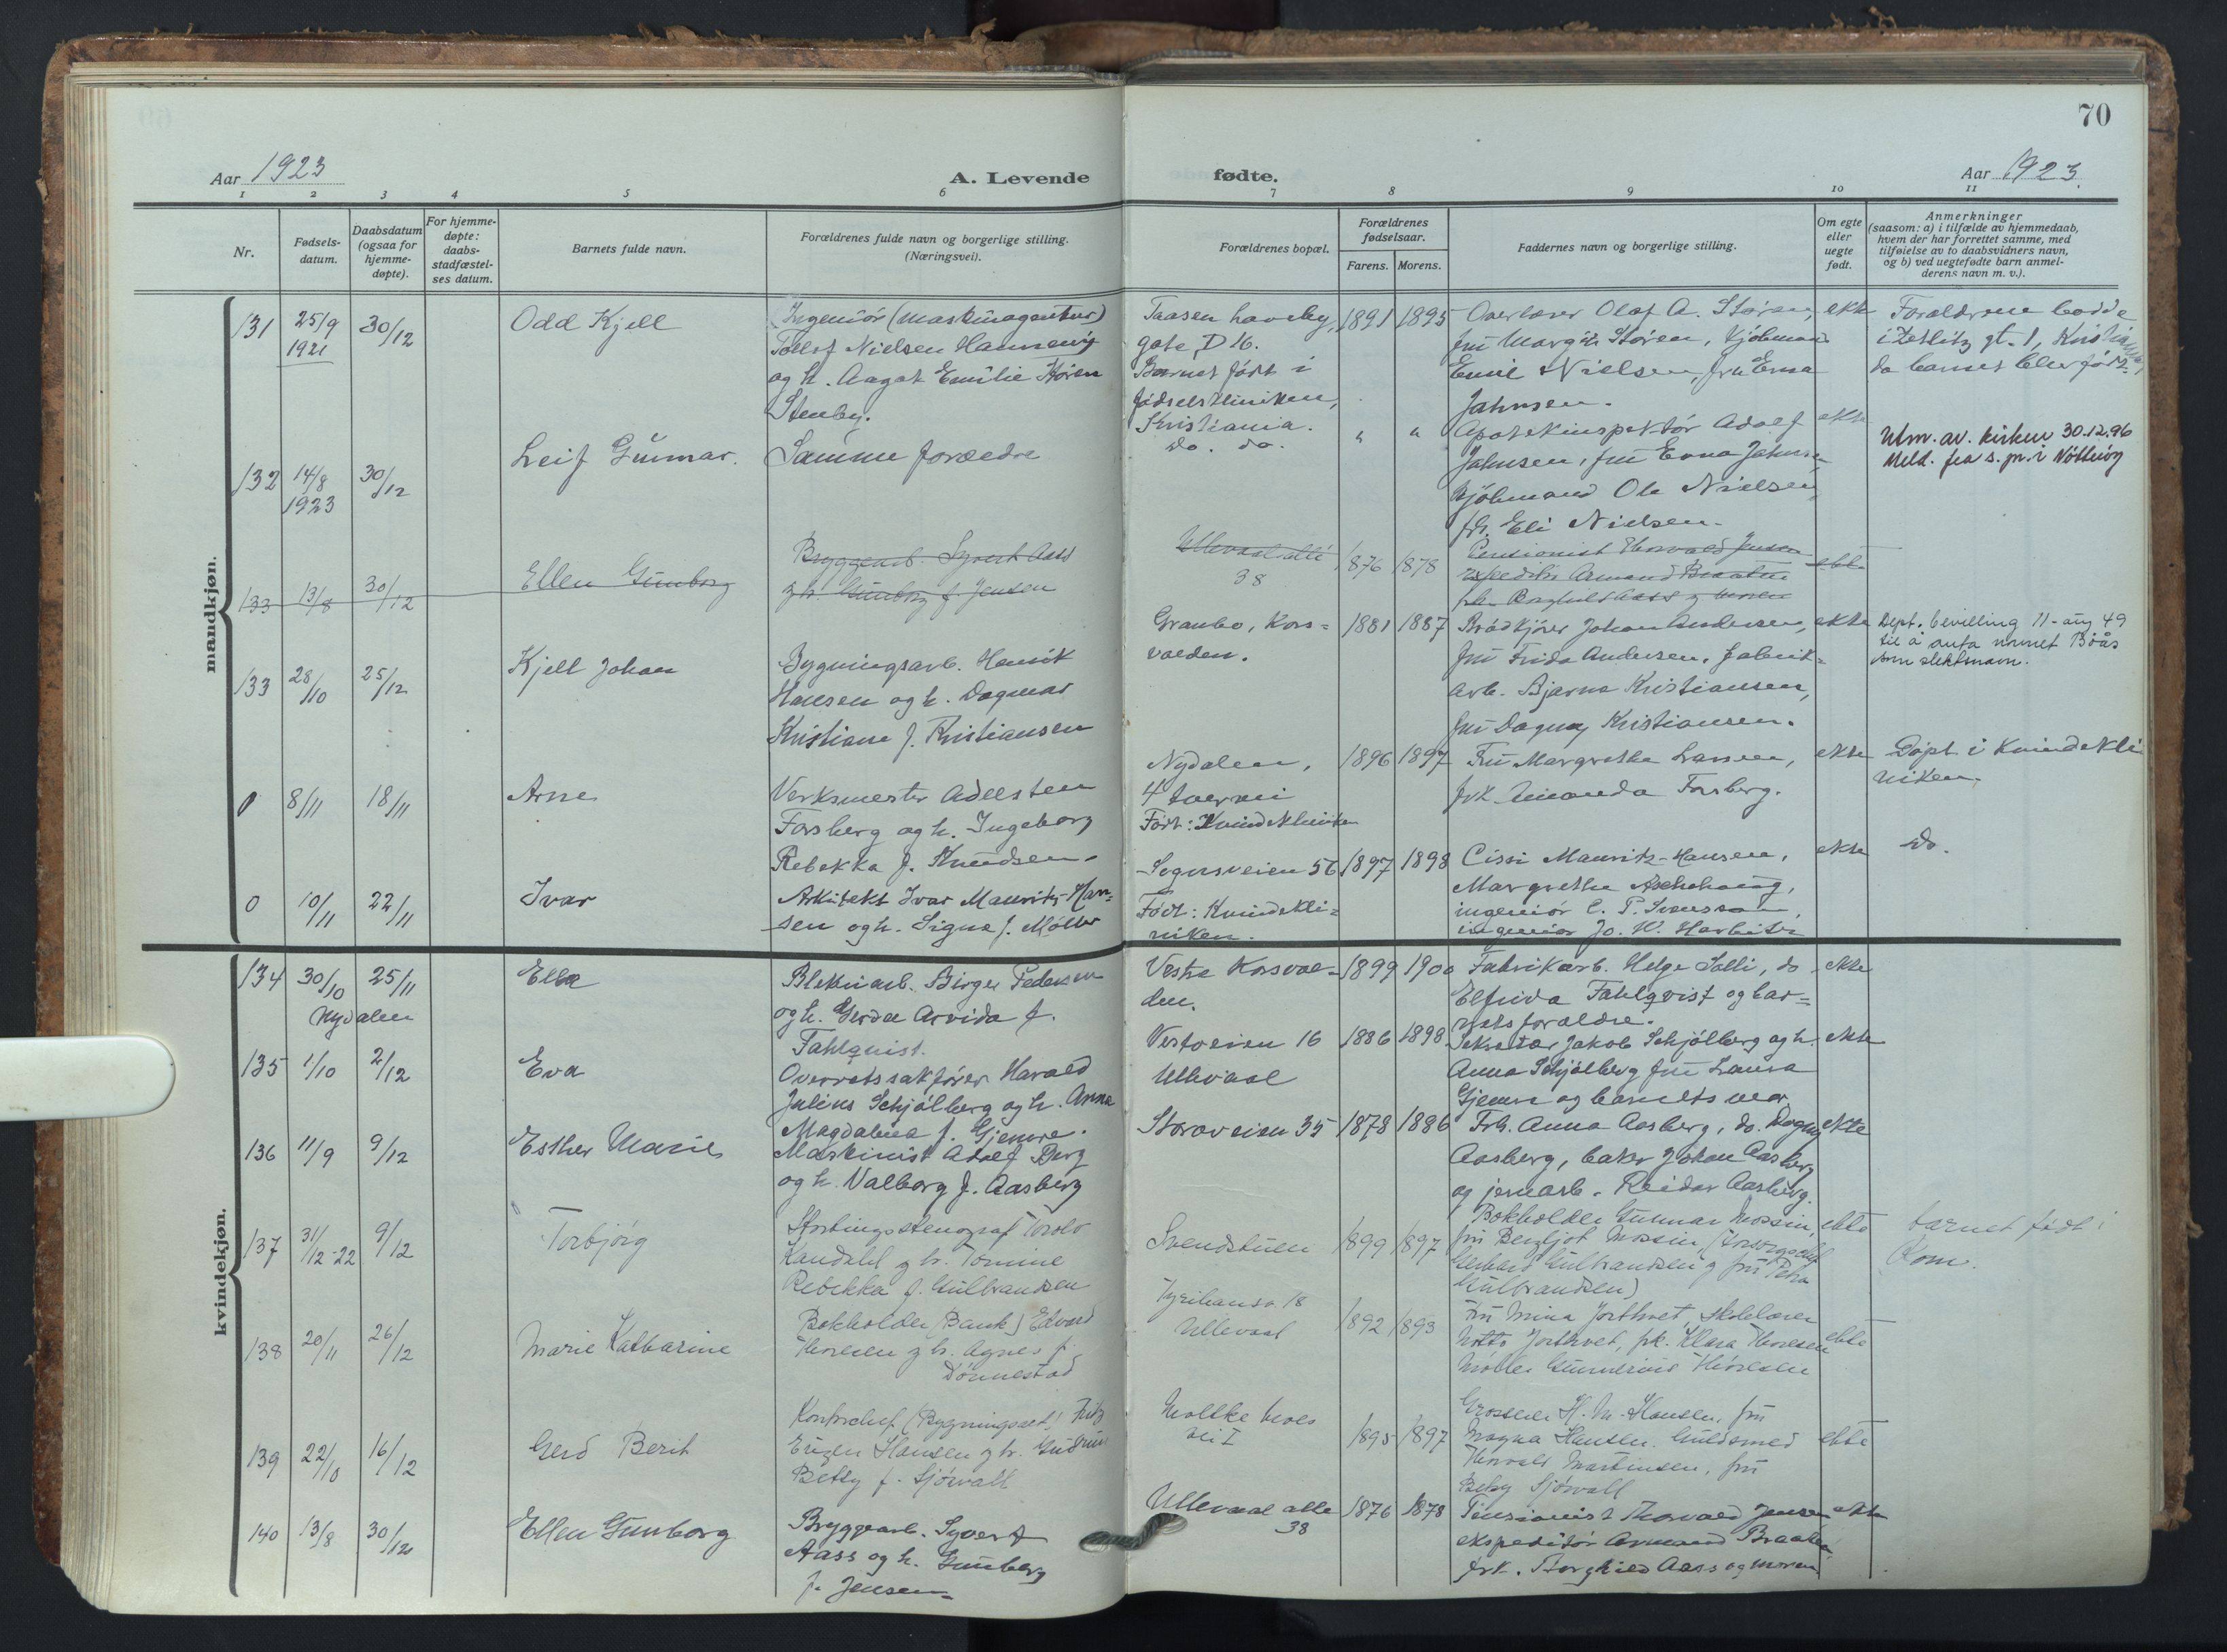 70
Aar 1923
A. Levende
fødte.
Aar 1923.
1 2 3 4 5 6 7 8 9 10 11
Nr.
Fødsels-
datum.
Daabsdatum
(ogsaa for
hjemme-
døpte).
For hjemme-
døpte:
daabs-
stadfæstel-
ses datum.
Barnets fulde navn.
Forældrenes fulde navn og borgerlige stilling.
(Næringsvei).
Forældrenes bopæl.
Forældrenes
fødselsaar.
Farens. Morens.
Faddernes navn og borgerlige stilling.
Om egte
eller
uegte
født.
Anmerkninger
(saasom: a) i tilfælde av hjemmedaab,
hvem der har forrettet samme, med
tilføielse av to daabsvidners navn,
og b) ved uegtefødte barn anmel-
derens navn m. v.).
mandkjøn.
131 25/9 1921 30/12
Odd Kjell
Ingeniør (maskinagentur)
Nielsen Hannevig
og h. Aagot Emilie Støren
Stenby.
Taasen haveby,
gate D 16.
Barnet født i
fødselskliniken,
Kristiania.
1891 1895
Overlærer Olaf A. Støren,
fru Margit Støren, kjøbmand
Emil Nielsen, fru Erna
Jahnsen.
ekte
Forældrene bodde
i Zetlitz gt. 1, Kristiania,
da barnet blev født.
132 14/8 1923 30/12
Leif Gunnar.
Samme forældre
do. do.
" "
Apotekinspektør Adolf
Jahnsen, fru Erna Jahnsen,
kjøbmand Ole Nielsen,
frk. Eli Nielsen.
ekte
Utm. av kirken 30.12.96
Meld. fra s.pr. i Nøtterøy
133 13/8 30/12
Ellen Gunborg
Bryggearb. Syvert Aass
og h. Gunborg f. Jensen
Ullevaal allé
38
1876 1878
Pensionist Thorvald Jensen
ekspeditør Armand Braaten
frk. Borghild Aass og moren
ekte
133 28/10 25/12
Kjell Johan
Bygningsarb. Henrik
Hansen og h. Dagmar
Kristiane f. Kristiansen
Granbo, Kors=
volden.
1881 1887
Brødkjører Johan Andersen,
fru Frida Andersen, fabrik=
arb. Bjarne Kristiansen,
fru Dagny Kristiansen.
ekte
Dept. bevilling 11-aug 49
til å anta navnet Bøås
som slektsnavn.
0 8/11 18/11
Arne
Verksmester Adelsten
Forsberg og h. Ingeborg
Rebekka f. Knudsen.
Nydalen,
4 tvervei
Født: Kvindekliniken
1896 1897
Fru Margrethe Larsen,
frk. Amanda Forsberg.
ekte
Døpt i Kvindekli
niken.
0 10/11 22/11
Ivar
Arkitekt Ivar Mauritz-Han=
sen og h. Signe f. Møller
Sognsveien 56
Født: Kvindekli=
niken.
1897 1898
Cissi Mauritz-Hansen,
Margrethe Aschehoug,
ingeniør C. P. Svensson,
ingeniør Jo. W. Harbitz
ekte
Do.
kvindekjøn.
134 30/10 25/11
Nydalen
Ella
Blekeriarb. Birger Pedersen
og h. Gerda Arvida f.
Fahlquist.
Vestre Korsvol=
den.
1899 1900
Fabrikarb. Helge Solli, do
Elfrida Fahlqvist og bar=
nets forældre.
ekte
135 1/10 2/12
Eva
Overretssakfører Harald
Julius Schjølberg og h. Anna
Magdalena f. Gjemre.
Vestveien 16
Ullevaal
1886 1898
Sekretær Jakob Schjølberg og h.
Anna Schjølberg fru Laura
Gjemre og barnets mor
ekte
136 11/9 9/12
Esther Marie
Maskinist Adolf Berg
og h. Valborg f. Aasberg
Storoveien 35
1878 1886
Frk. Anna Aasberg, do. Dagny
Aasberg, baker Johan Aasberg
og jernarb. Reidar Aasberg.
ekte
137 31/12-22 9/12
Torbjørg
Stortingsstenograf Torolv
Kandahl og h. Tomine
Rebekka f. Gulbrandsen
Svendstuen
1899 1897
Bokholder Gunnar Mossin,
fru Bergljot Mossin (Forsorgschef
Gerhard Gulbrandsen og fru Petra
Gulbrandsen)
ekte
barnet født i
Rom.
138 20/11 26/12
Marie Katharine
Bokholder (Bank) Edvard
Thoresen og h. Agnes f.
Dønnestad
Tyrihansv. 18
Ullevaal
1892 1893
Fru Mina Jorthvet, skolelærer
Jorthvet, frk. Klara Thoresen
Møller Gunnerius Thoresen
ekte
139 22/10 16/12
Gerd Berit
Kontorchef (Bygningsaet.) Fritz
Eugen Hansen og h. Gudrun
Betsy f. Sjøwall
Moltke Moes
vei I
1895 1897
Grosserer H. M. Hansen, fru
Magna Hansen. Guldsmed
Thorvald Martinsen, fru
Betsy Sjøwall
ekte
140 13/8 30/12
Ellen Gunborg
Bryggearb. Syvert
Aass og h. Gunborg
f. Jensen
Ullevaal alle
38
1876 1878
Pensionist Thorvald Jensen
ekspeditør Armand Braaten,
frk. Borghild Aass og moren
ekte